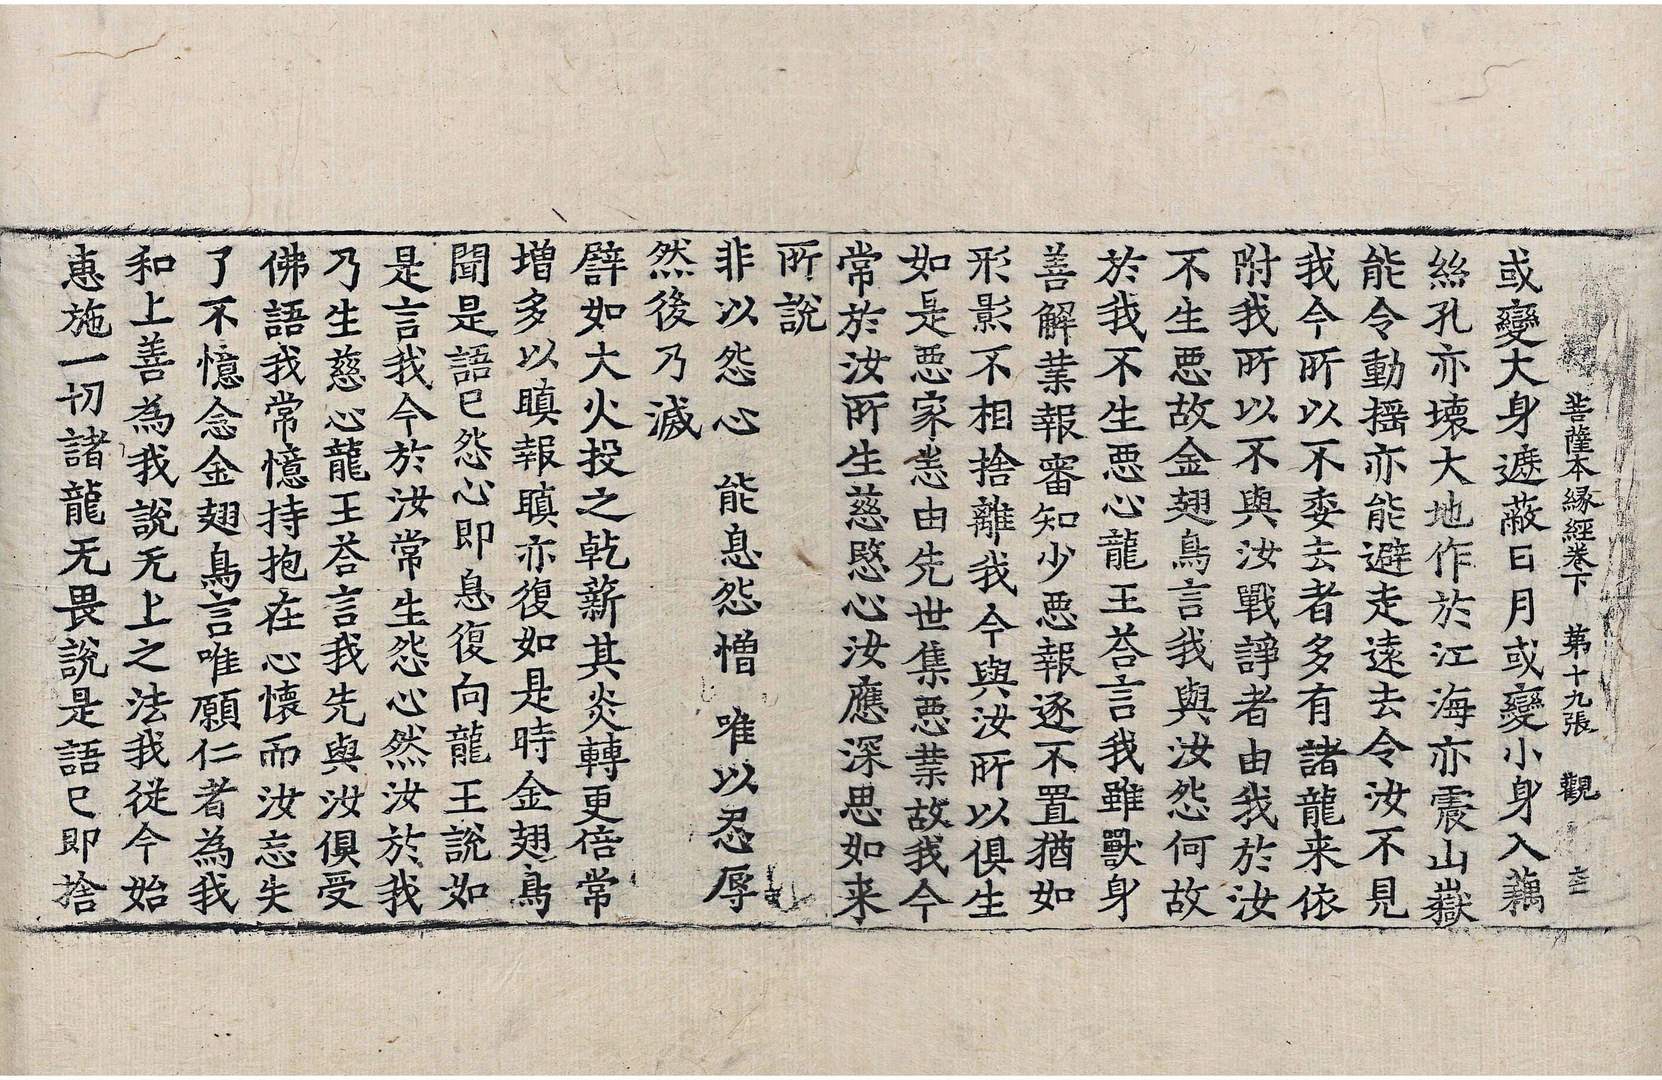 菩薩本緣經卷下 第十九張 觀
或變大身遮蔽日月或變小身入藕
絲孔亦壞大地作於江海亦震山嶽
能令動揺亦能避走遠去令汝不見
我今所以不委去者多有諸龍来依
附我所以不與汝戰諍者由我於汝
不生惡故金翅鳥言我與汝怨何故
於我不生惡心龍王荅言我雖獸身
善解業報審知少惡報逐不置猶如
形影不相捨離我今與汝所以俱生
如是惡家恙由先世集惡業故我今
常於汝所生慈愍心汝應深思如来
所說
非以怨心 能息怨憎 唯以忍辱
然後乃滅
譬如大火投之乾薪其炎轉更倍常
增多以瞋報瞋亦復如是時金翅鳥
聞是語已怨心即息復向龍王說如
是言我今於汝常生怨心然汝於我
乃生慈心龍王荅言我先與汝俱受
佛語我常憶持抱在心懷而汝忘失
了不憶念金翅鳥言唯願仁者為我
和上善為我說无上之法我從今始
惠施一切諸龍无畏說是語已即捨